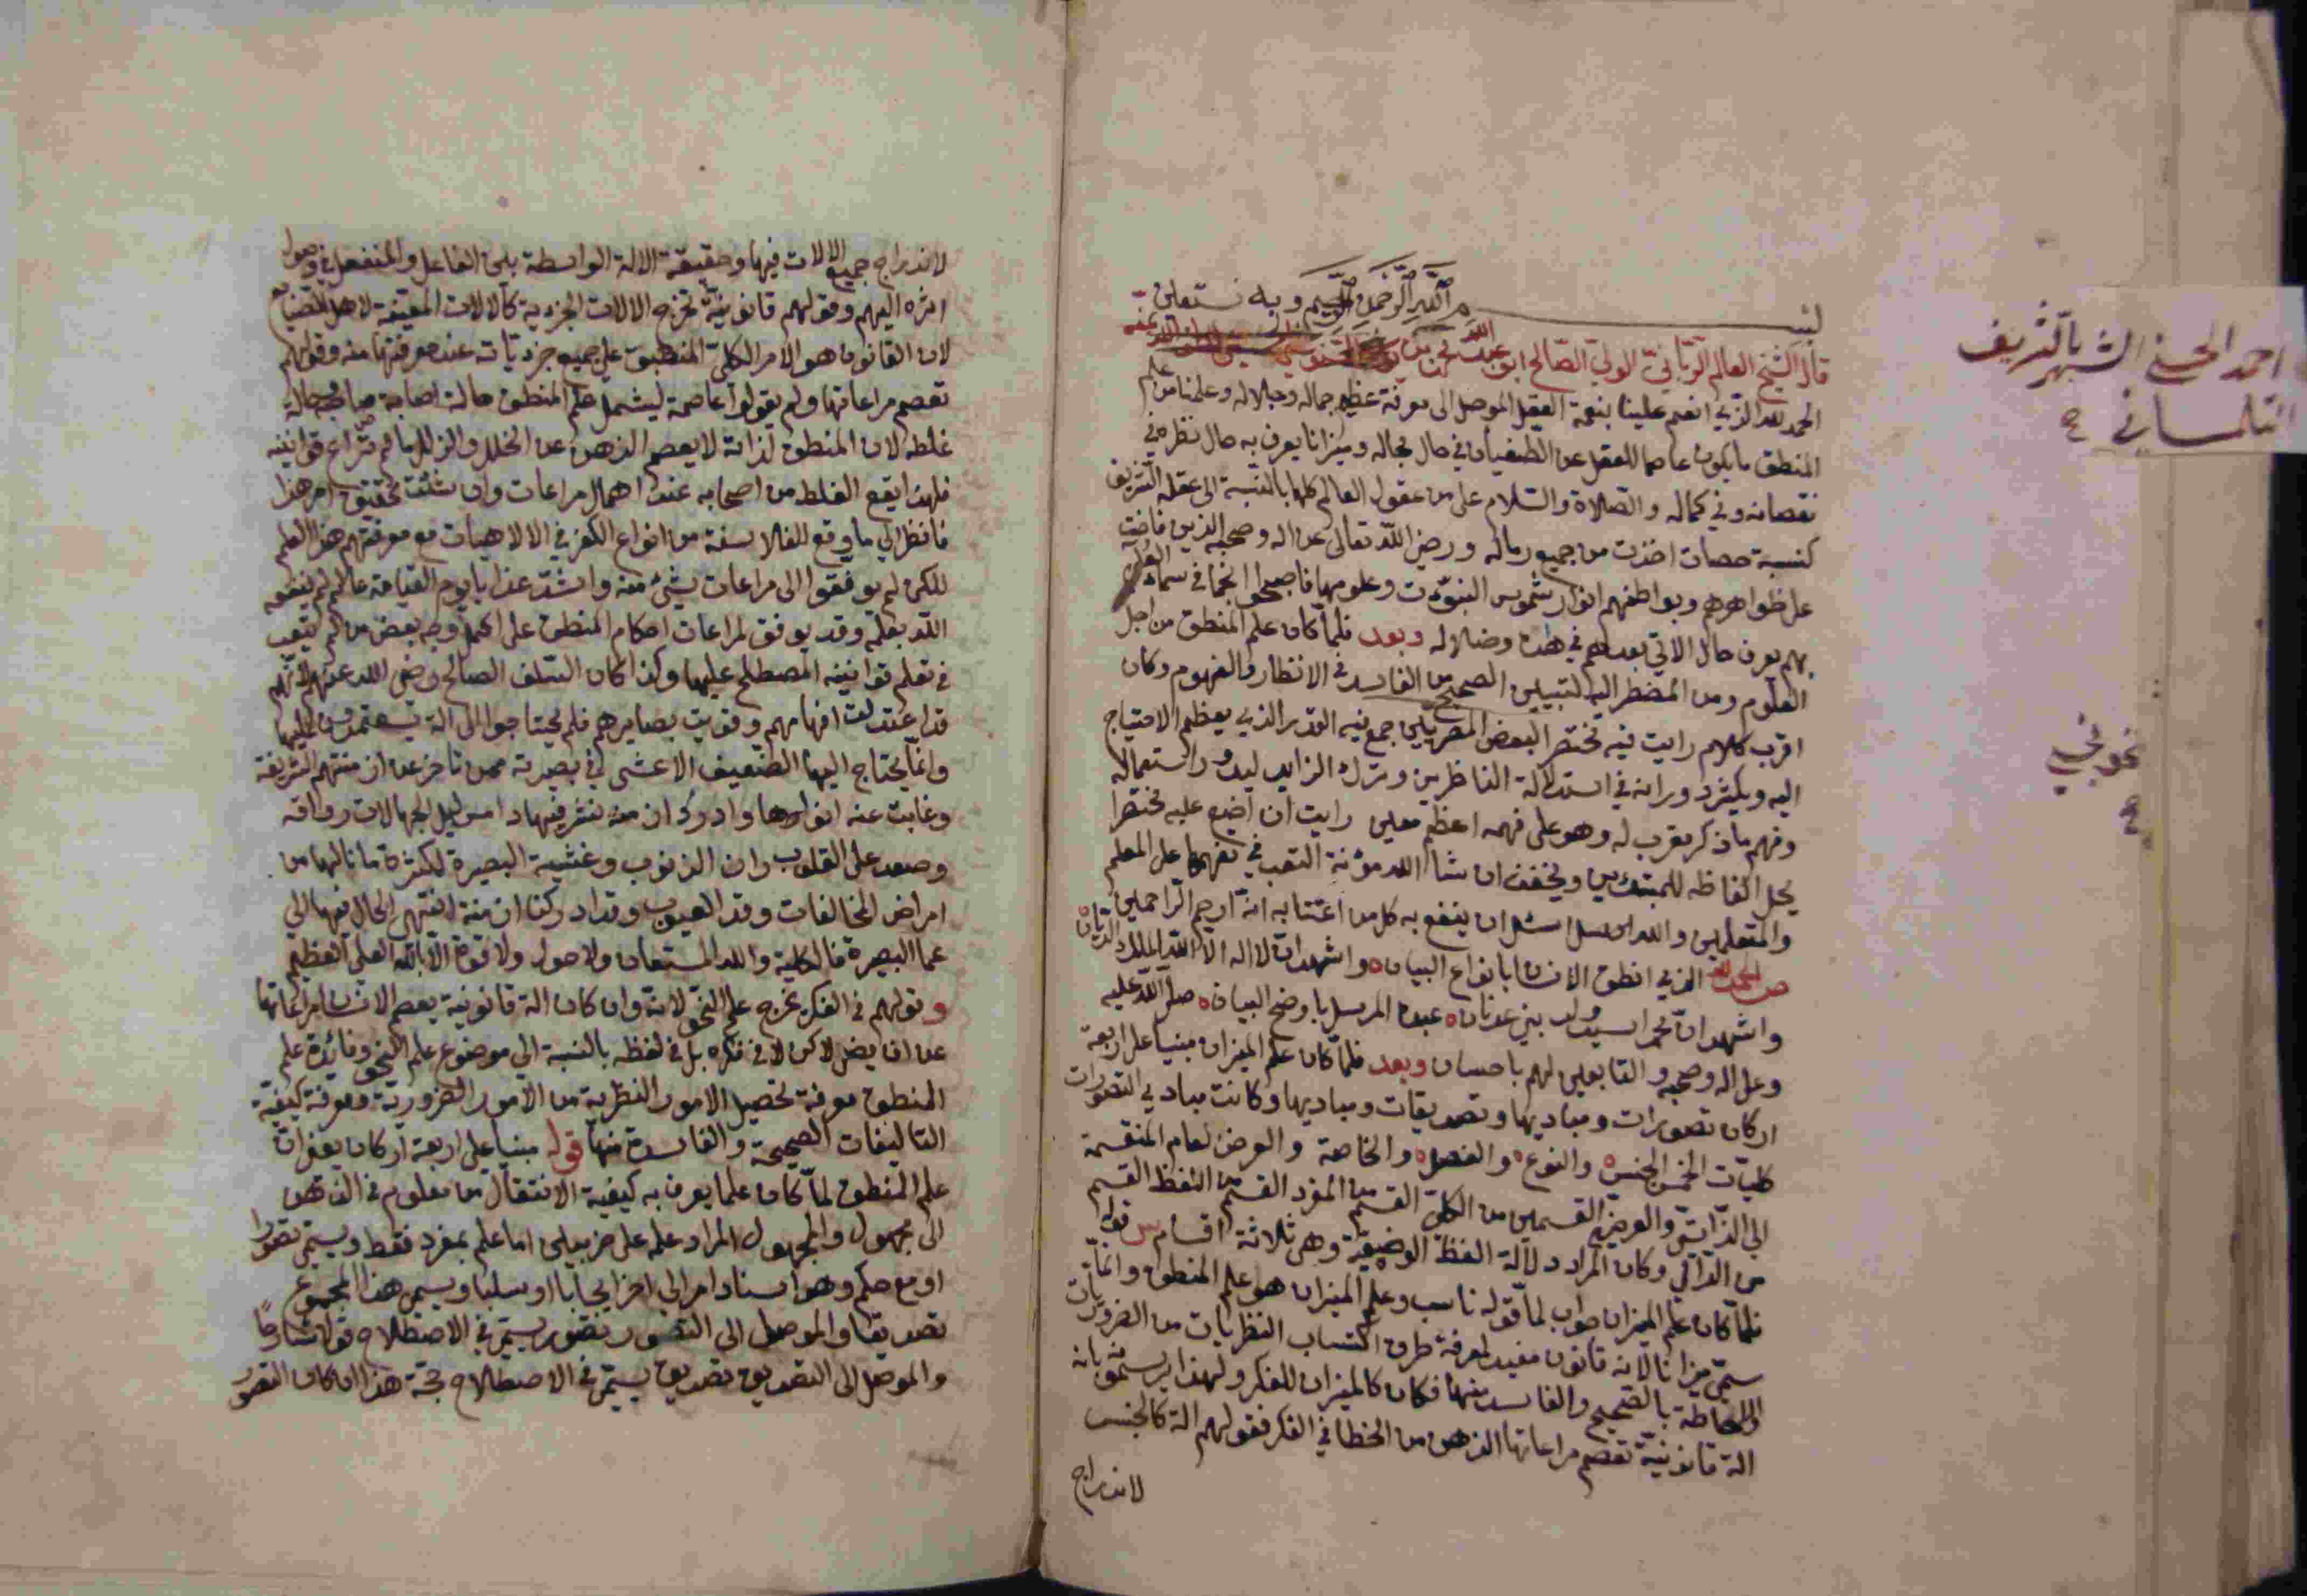 بسم الله الرحمن الرحيم وبه نستعين
قال الشيخ العالم الرباني الولي الصالح ابو عبد الله محمد بن يوسف السنوسي
الحمد لله الذي انعم علينا بنعمة العقل الموصل الى معرفة عظيم جماله وجلاله وعلمنا من علم
المنطق ما يكون عاصما للعقل عن الطغيان في حال مجاله وميزانا يعرف به حال نظره في
نقصانه وفي كماله والصلاة والسلام على من عقول العالم كلها بالنسبة الى عقله الشريف
كنسبة حصات اخذت من جميع رماله ورضي الله تعالى عن اله وصحبه الذين فاضت
على ظواهرهم وبواطنهم انوار شموس النبوءت وعلومها فاصبحوا انجما في سماء العلا
بهم يعرف حال الاتي بعدهم في هداه وضلاله وبعد فلما كان علم المنطق من اجل
العلوم ومن المضطر اليه لتبيين الصحيح من الفاسد في الانظار والفهوم وكان
اقرب كلام رايت فيه مختصر البعض المصريين جمع فيه القدر الذي يعظم الاحتياج
اليه ويكثر دورانه في استدلالة الناظرين وترك الزايد لندور استعماله
وفهم ما ذكر يقرب له وهو على فهمه اعظم معين رايت ان اضع عليه مختصرا
يحل الفاظه للمبتدئين ويخفف ان شا الله مؤنة التعب في تفهمها على المعلم
والمتعلمين والله اسئل ان ينفع به كل من اعتنا به انه ارحم الراحمين
ص الحمد لله الذي انطق الانسان بانواع البيان واشهد ان لا اله الا الله الملك الديان
واشهد ان محمدا سيد ولد بني عدنان عبده المرسل باوضح البيان صلى الله عليه
وعلى اله وصحبه والتابعين لهم باحسان وبعد فلما كان علم الميزان مبنيا على اربعة
اركان تصورات ومباديها وتصديقات ومباديها وكانت مبادي التصورات
كليات الخمس الجنس والنوع والفصل والخاصة والعرض لعام المنقسمة
الى الذاتي والعرضي القسمين من الكلي القسم من المفرد القسم من اللفظ القسم
من الدال وكان المراد دلالة اللفظ الوضعية وهي ثلاثة اقسام س قوله
فلما كان علم الميزان جواب لما قوله ناسب وعلم الميزان هو علم المنطق وانما
سمي ميزانا لانه قانون مفيد لمعرفة طرق اكتساب النظريات من الضروريات
والاحاطة بالصحيح والفاسد منها فكان كالميزان للفكر ولهذا يرسمونه بانه
الة قانونية تعصم مراعاتها الذهن من الخطا في الفكر فقولهم الة كالجنس
لاندراج
احمد الحسني الشهير بالشريف
التلمساني
نحوني
لاندراج جميع الالات فيها وحقيقة الالة الواسطة بين الفاعل والمنفعل في وصول
اثره اليهم وقولهم قانونية تخرج الالات الجزءية كالالات المعينة لاهل الصنايع
لان القانون هو الامر الكلي المنطبق على جميع جزئياته عند معرفتها منه وقولهم
تعصم مراعاتها ولم يقولوا عاصمة ليشمل علم المنطق حالة اصابة صاحبه وحالة
غلطه لان المنطق لذاته لا يعصم الذهن عن الخلل والزلل ما لم تراع قوانينه
فلهذا يقع الغلط من اصحابه عند اهمال مراعات وان شئت تحقيق امر هذا
فانظر الى ما وقع للفلاسفة من انواع الكفر في الالاهيات مع معرفتهم هذا العلم
لكن لم يوفقوا الى مراعات شيء منه واشد عذابا يوم القيامة عالم لم ينفعه
الله بعلمه وقد يوفق لمراعات احكام المنطق على اكمل وجه بعض من لم يتعب
في تعلم قوانينه المصطلح عليها وكذا كان السلف الصالح رضي الله عنهم لانهم
قد اعتدلت افهامهم وقويت بصايرهم فلم يحتاجوا الى الة يعتمدون عليها
وانما يحتاج اليها الضعيف الاعشى في بصيرته ممن تاخر عن ازمنتهم الشريفة
وغابت عنه انوارها وادرك ازمنة نشر فيها دامس ليل الجهالات رواقه
وصعد على القلوب ران الذنوب وغشية البصيرة لكثرة ما نالها من
امراض المخالفات وقذر العيوب وقد ادركنا ازمنة انتهى الحال فيها الى
عما البصيرة فالكلية والله المستعان ولا حول ولا قوة الا بالله العلي العظيم
وقولهم في الفكر يخرج علم النحو لانه وان كان الة قانونية يعصم الانسان مراعاتها
عن ان يضل لاكن لا في فكره بل في لفظه بالنسبة الى موضوع علم النحو وفائدة علم
المنطق معرفة تحصيل الامور النظرية من الامور الضرورية ومعرفة كيفية
التاليفات الصحيحة والفاسدة منها قوله مبنيا على اربعة اركان يعني ان
علم المنطق لما كان علما يعرف به كيفية الانتقال من معلوم في الذهن
الى مجهول والمجهول المراد علمه على ضربين اما علم بمفرد فقط ويسمى تصورا
او مع حكم وهو اسناد امر الى اخر ايجابا او سلبا ويسمى هذا المجموع
تصديقا والموصل الى التصور تصور يسمى في الاصطلاح قولا شارحا
والموصل الى التصديق تصديق يسمى في الاصطلاح حجة هذا ان كان التصور